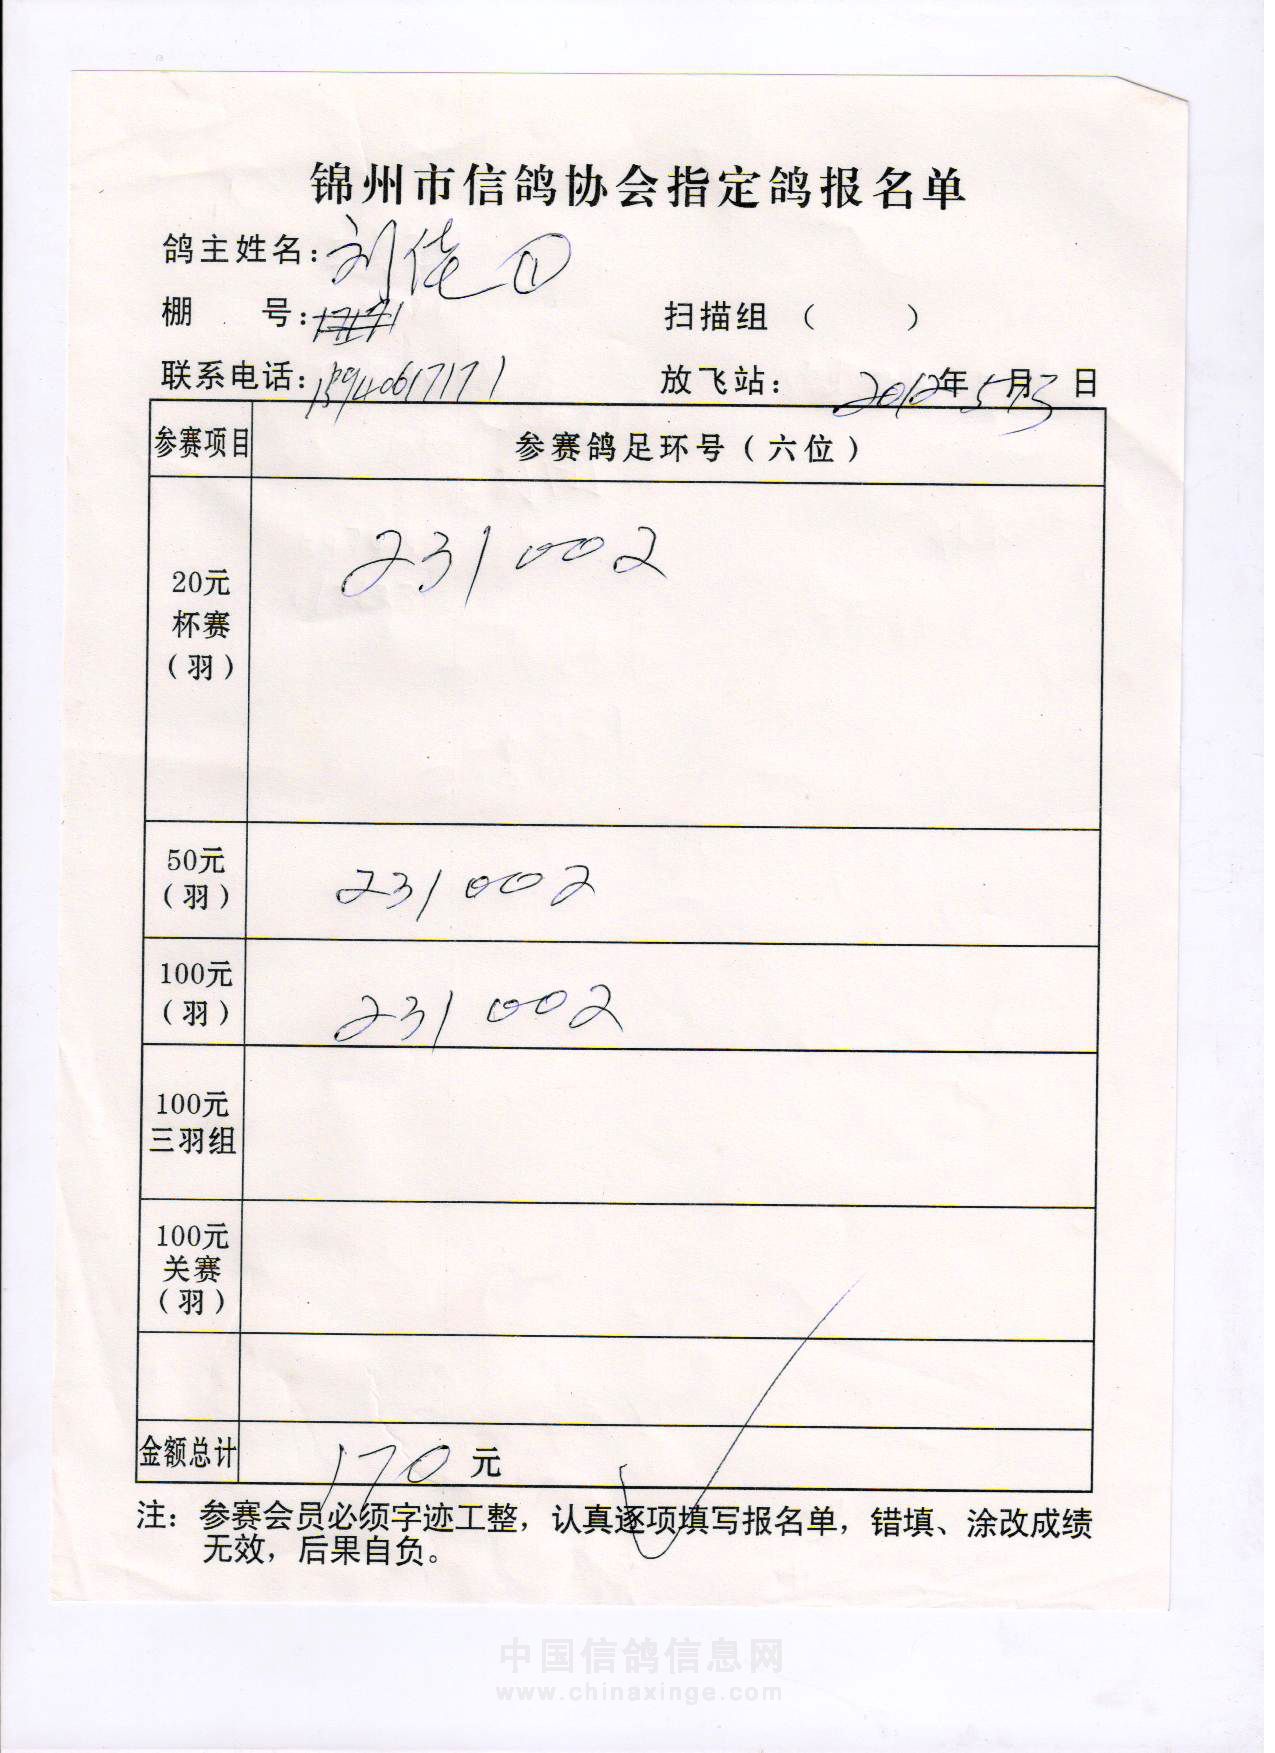 锦州市信鸽协会指定鸽报名单
鸽主姓名：刘佬 ①
棚 号： 扫描组（ ）
联系电话：15940617171 放飞站： 2012年5月13日
参赛项目 参赛鸽足环号（六位）
20元
杯赛
（羽） 231002
50元
（羽） 231002
100元
（羽） 231002
100元
三羽组
100元
关赛
（羽）
金额总计 170 元
注：参赛会员必须字迹工整，认真逐项填写报名单，错填、涂改成绩
无效，后果自负。
中国信鸽信息网
www.chinaxinge.com